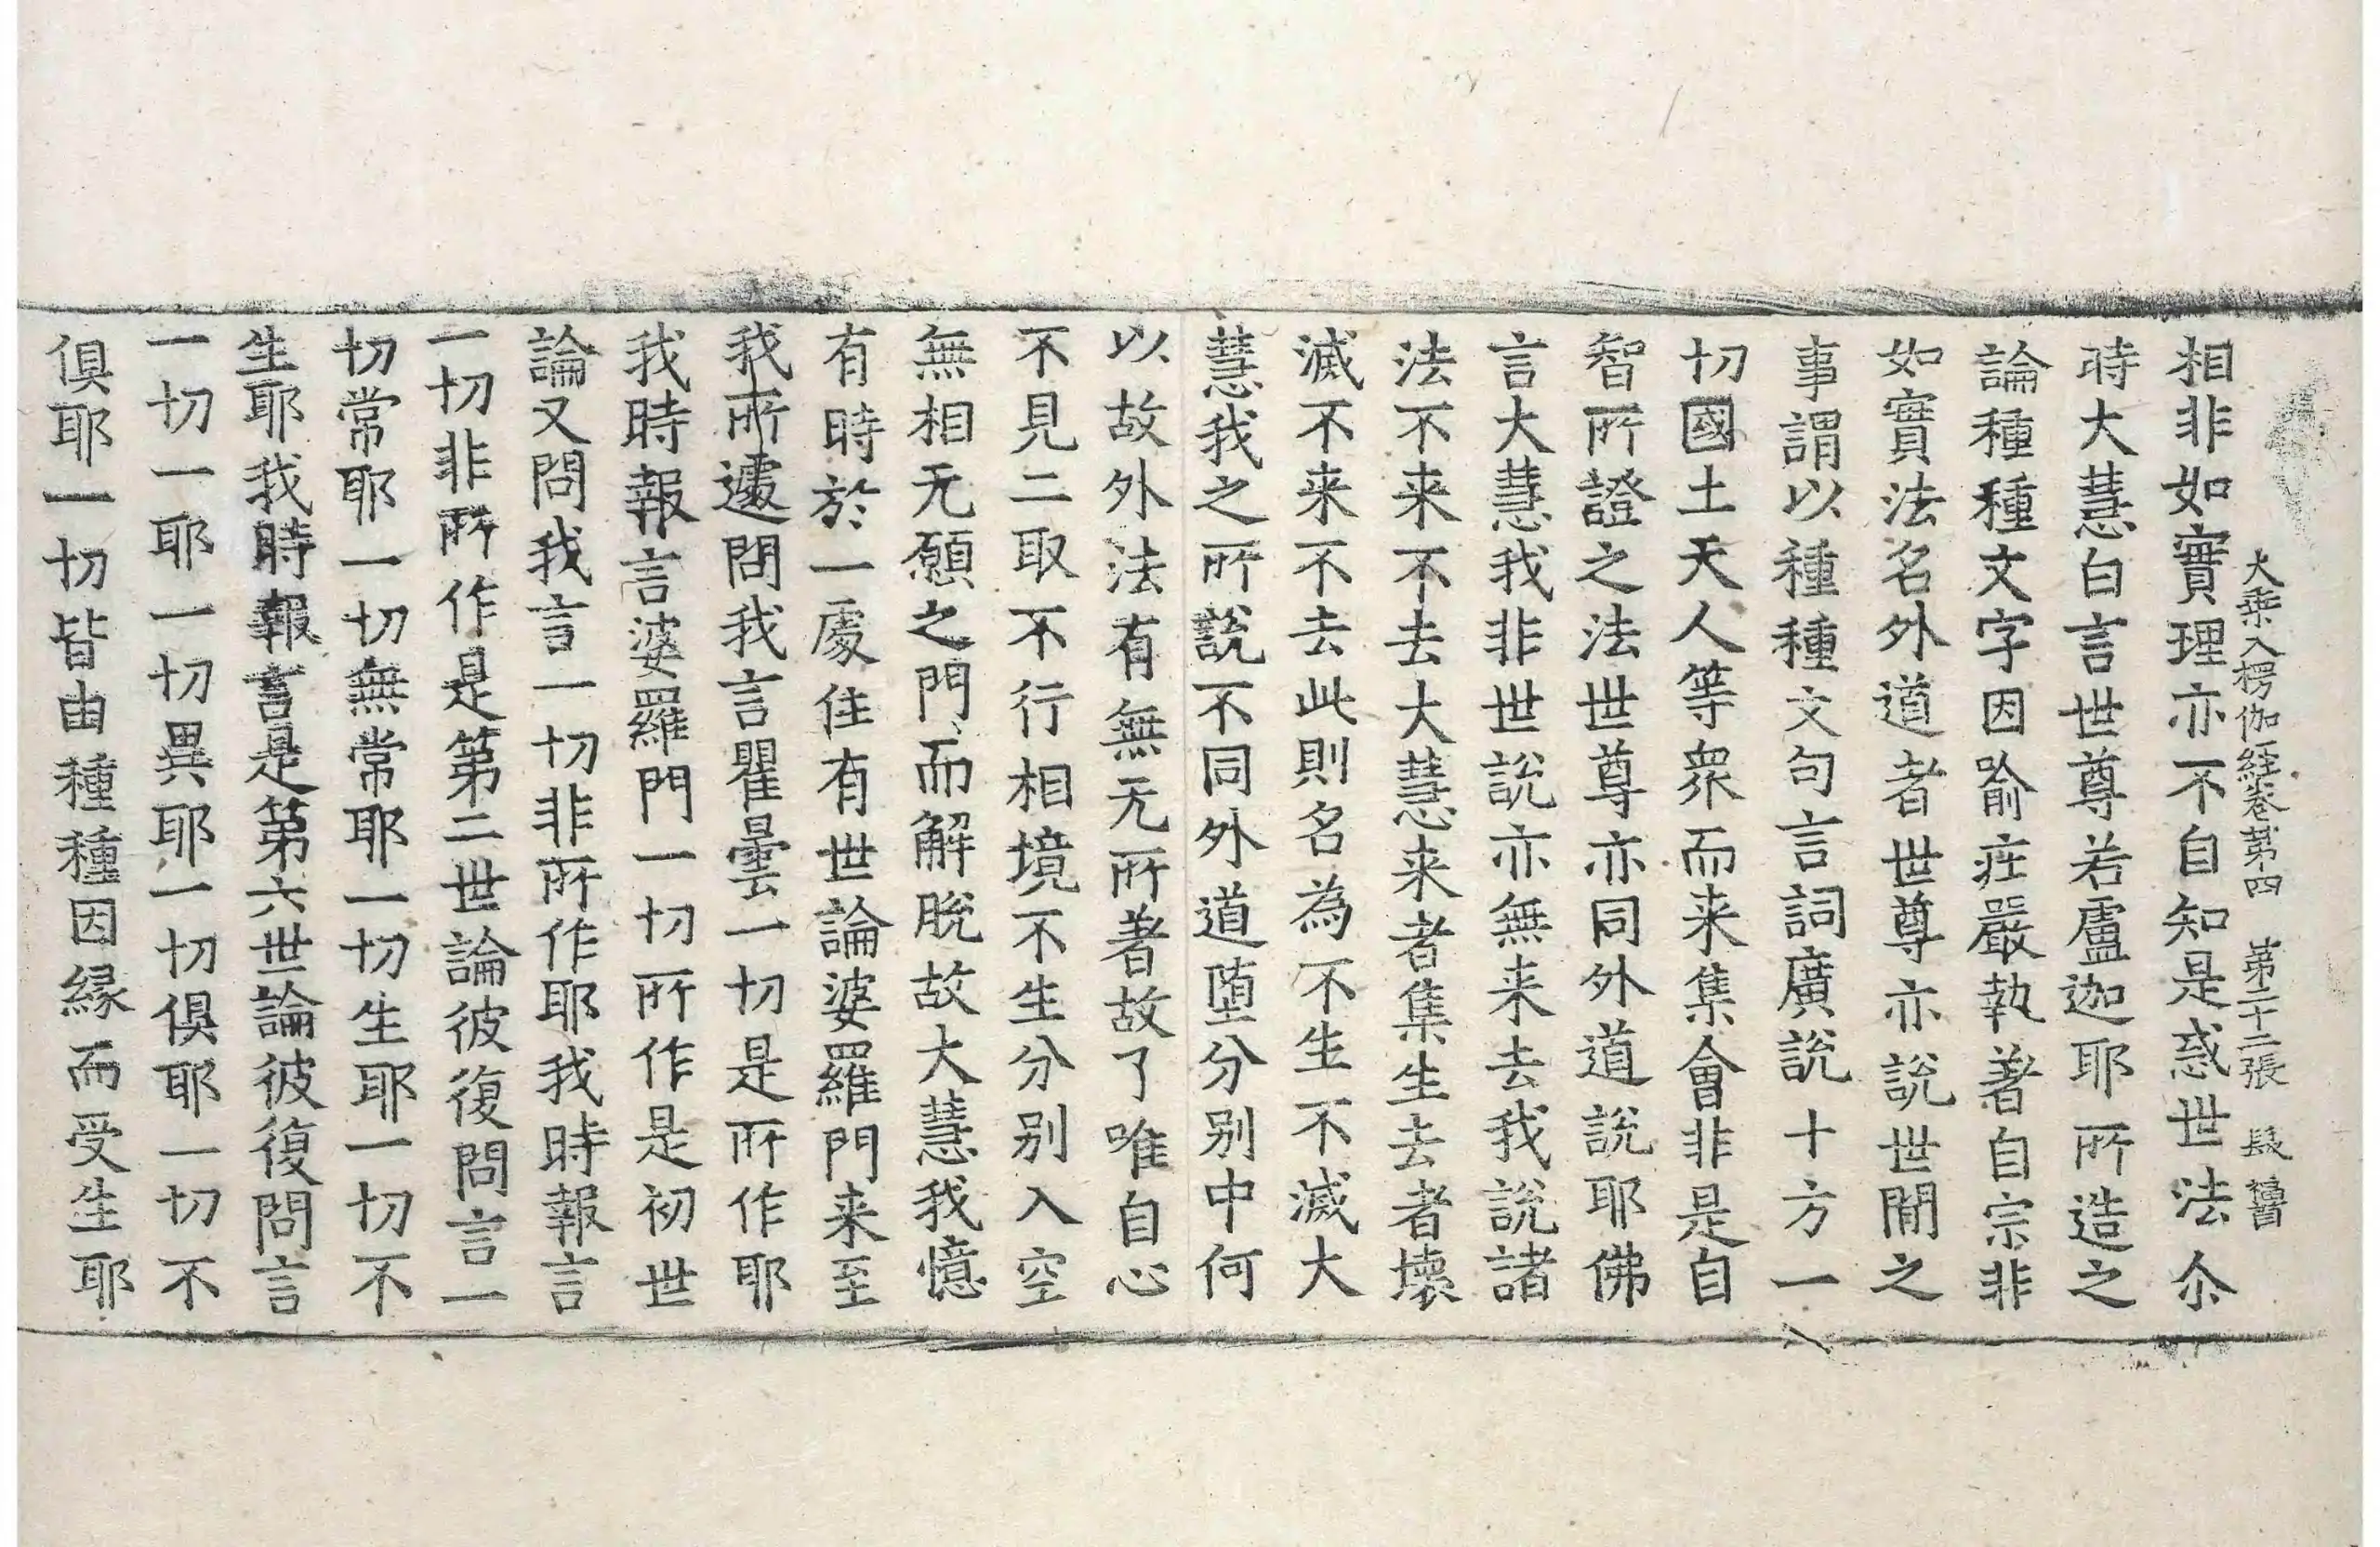 大乘入楞伽經卷第四　第二十二張
相非如實理亦不自知是惑世法尒
時大慧白言世尊若盧迦耶所造之
論種種文字因喻疰嚴執著自宗非
如實法名外道者世尊亦說世閒之
事謂以種種文句言詞廣說十方一
切國土天人等衆而来集會非是自
智所證之法世尊亦同外道說耶佛
言大慧我非世說亦無来去我說諸
法不来不去大慧来者集生去者壞
滅不来不去此則名為不生不滅大
慧我之所說不同外道墮分别中何
以故外法有無无所著故了唯自心
不見二取不行相境不生分别入空
無相无願之門而解脫故大慧我憶
有時於一處住有世論婆羅門来至
我所遽問我言瞿曇一切是所作耶
我時報言婆羅門一切所作是初世
論又問我言一切非所作耶我時報言
一切非所作是第二世論彼復問言一
切常耶一切無常耶一切生耶一切不
生耶我時報言是第六世論彼復問言
一切一耶一切異耶一切俱耶一切不
俱耶一切皆由種種因緣而受生耶